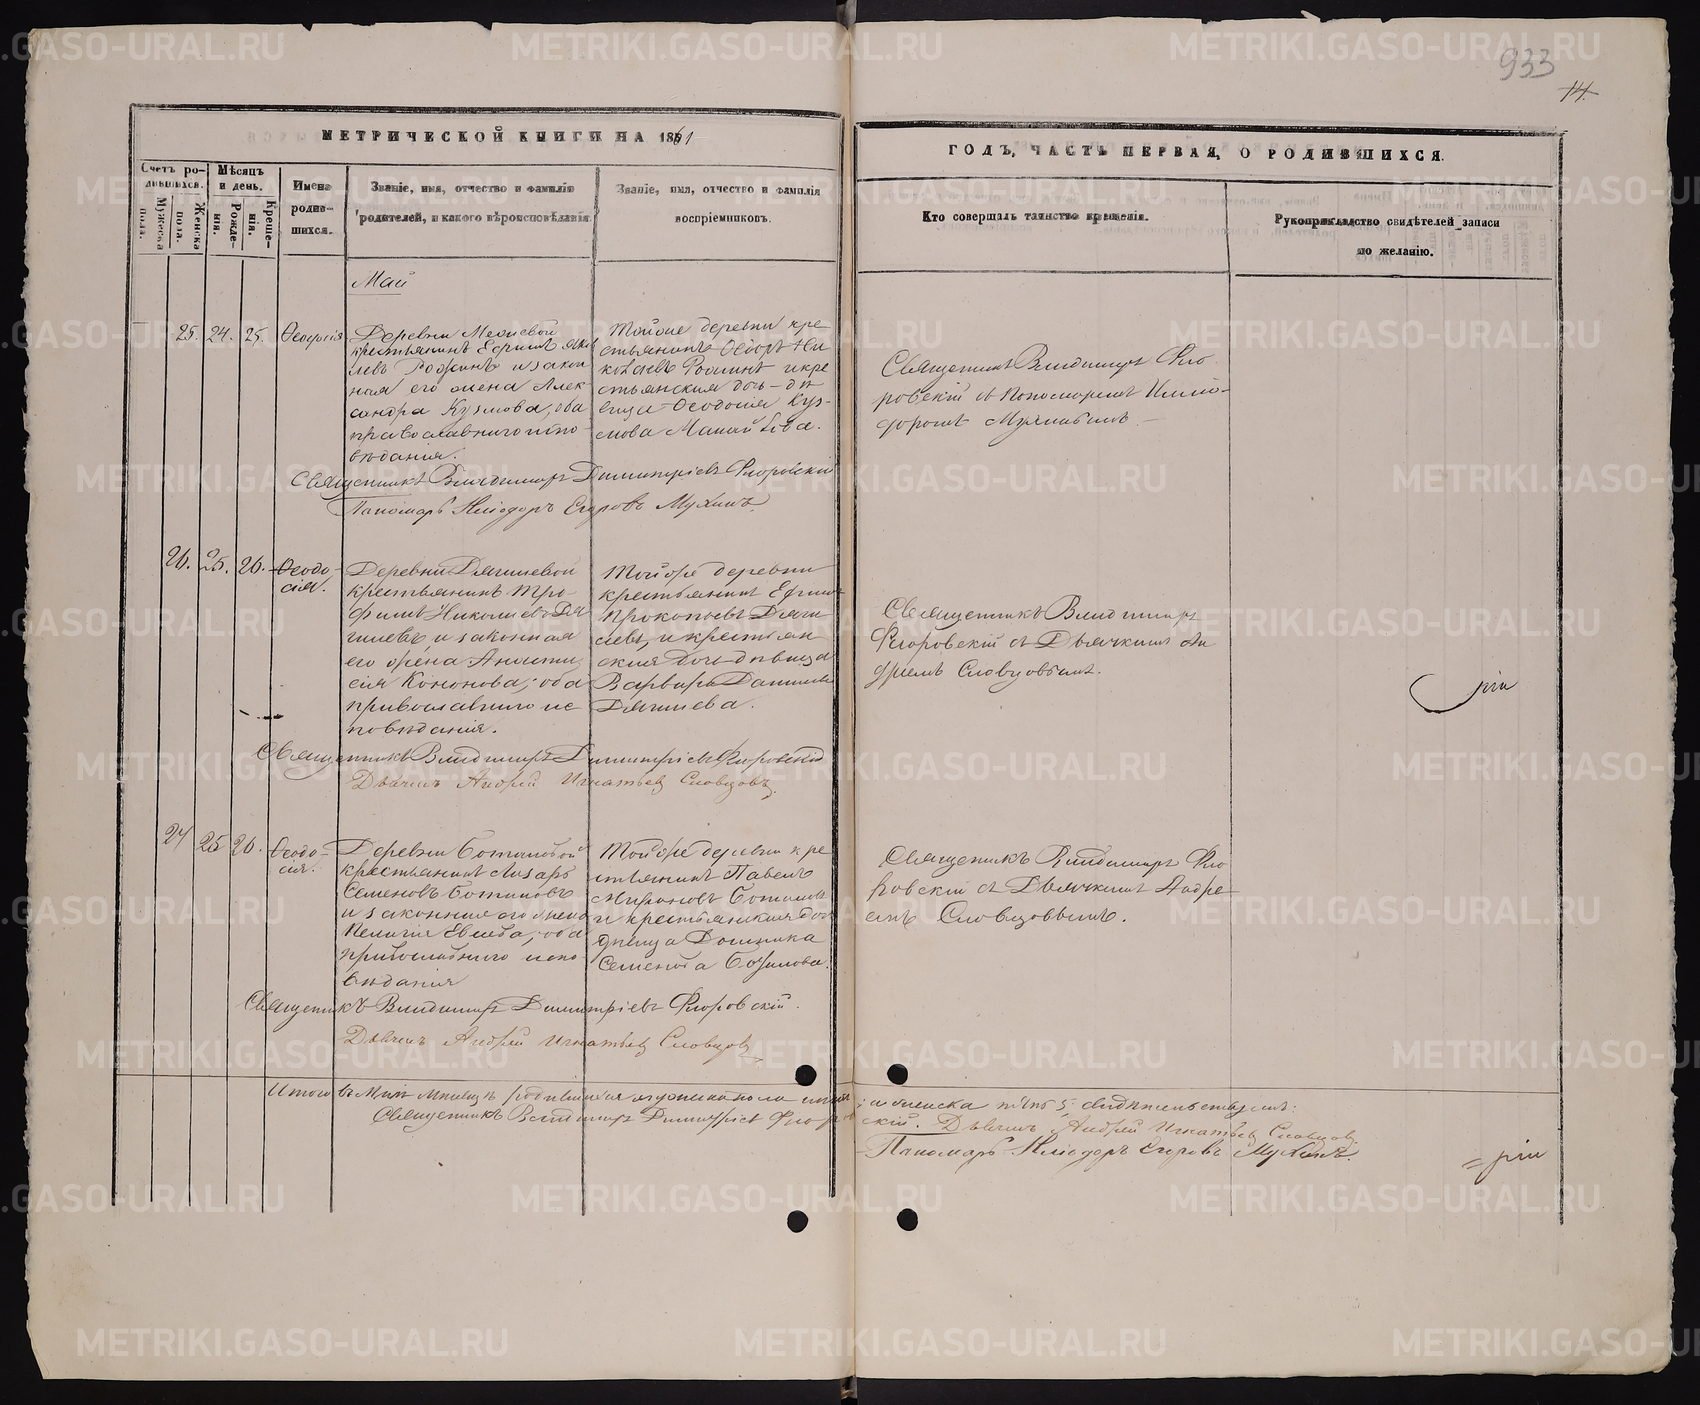 933
14.
МЕТРИЧЕСКОЙ КНИГИ НА 1861
ГОДЪ, ЧАСТЬ ПЕРВАЯ, О РОДИВШИХСЯ.
Счетъ ро-
дившихся.
Мужеска
пола.
Женска
пола.
Мѣсяцъ
и день.
Рожде-
нія.
Креще-
нія.
Имена
родив-
шихся.
Званіе, имя, отчество и фамилія
родителей, и какого вѣроисповѣданія.
Званіе, имя, отчество и фамилія
воспріемниковъ.
Кто совершалъ таинство крещенія.
Рукоприкладство свидѣтелей записи
по желанію.
Май
25. 24. 25.
Деревни
крестьянинъ Ефимъ Яков
левъ и закон
ная его жена Алек
сандра Кузмова, оба
православнаго испо-
вѣданія.
Тойже деревни кре
стьянинъ Ѳедоръ Ни
колаевъ и кре
стьянская дочь-дѣ
вица Ѳеодосія Куз-
мова
Священникъ Владимиръ Фло
ровскій съ Пономаремъ Илio-
доромъ Мухинымъ.
Священникъ Владимиръ Димитріевъ Флоровскій
Пономарь Иліодоръ Егоровъ Мухинъ
26. 25. 26.
Ѳеодо-
сія.
Деревни
крестьянинъ Тро
фимъ Николаевъ
и законная
его жена Анаста
сія Кононова, оба
православнаго ис
повѣданія.
Тойже деревни
крестьянинъ Ефимъ
Прокопьевъ
и крестьян
ская дочь дѣвица
Варвара
Священникъ Владимиръ
Флоровскій съ Дьячкомъ Ан
дреемъ Словцовымъ.
Священникъ Владимиръ Димитріевъ Флоровскій
Дьячекъ Андрей Игнатьевъ Словцовъ.
27 25 26.
Ѳеодо-
сія.
Деревни
крестьянинъ Лазарь
Семеновъ
и законная его жена
Пелагія оба
православнаго испо
вѣданія
Тойже деревни кре
стьянинъ Павелъ
Мироновъ
и крестьянская доч
дѣвица Домника
Семенова
Священникъ Владимиръ Фло
ровскій съ Дьячкомъ Андре
емъ Словцовымъ.
Священникъ Владимиръ Димитріевъ Флоровскій.
Дьячекъ Андрей Игнатьевъ Словцовъ
Итого въ Маѣ мѣсяцѣ родившихся мужеска пола женска пять 5,
Священникъ Владимиръ Димитріевъ Флоровскій. Дьячекъ Андрей Игнатьевъ Словцовъ.
Пономарь Иліодоръ Егоровъ Мухинъ.
METRIKI.GASO-URAL.RU